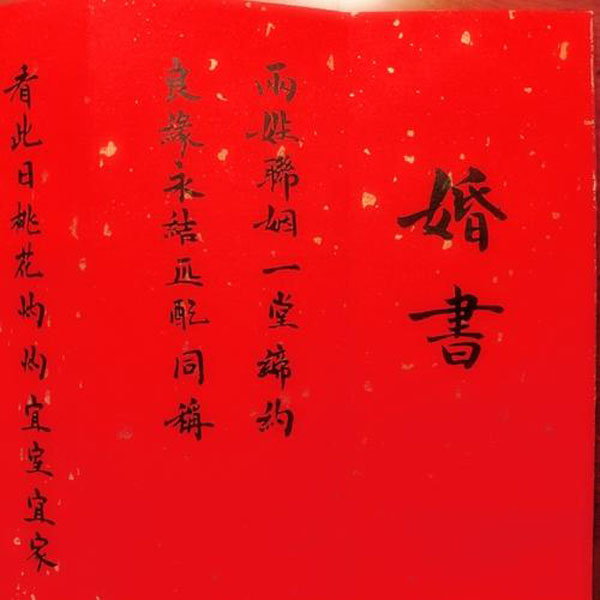 婚書
兩姓聯姻一堂締約
良緣永結匹配同稱
看此日桃花灼灼宜室宜家